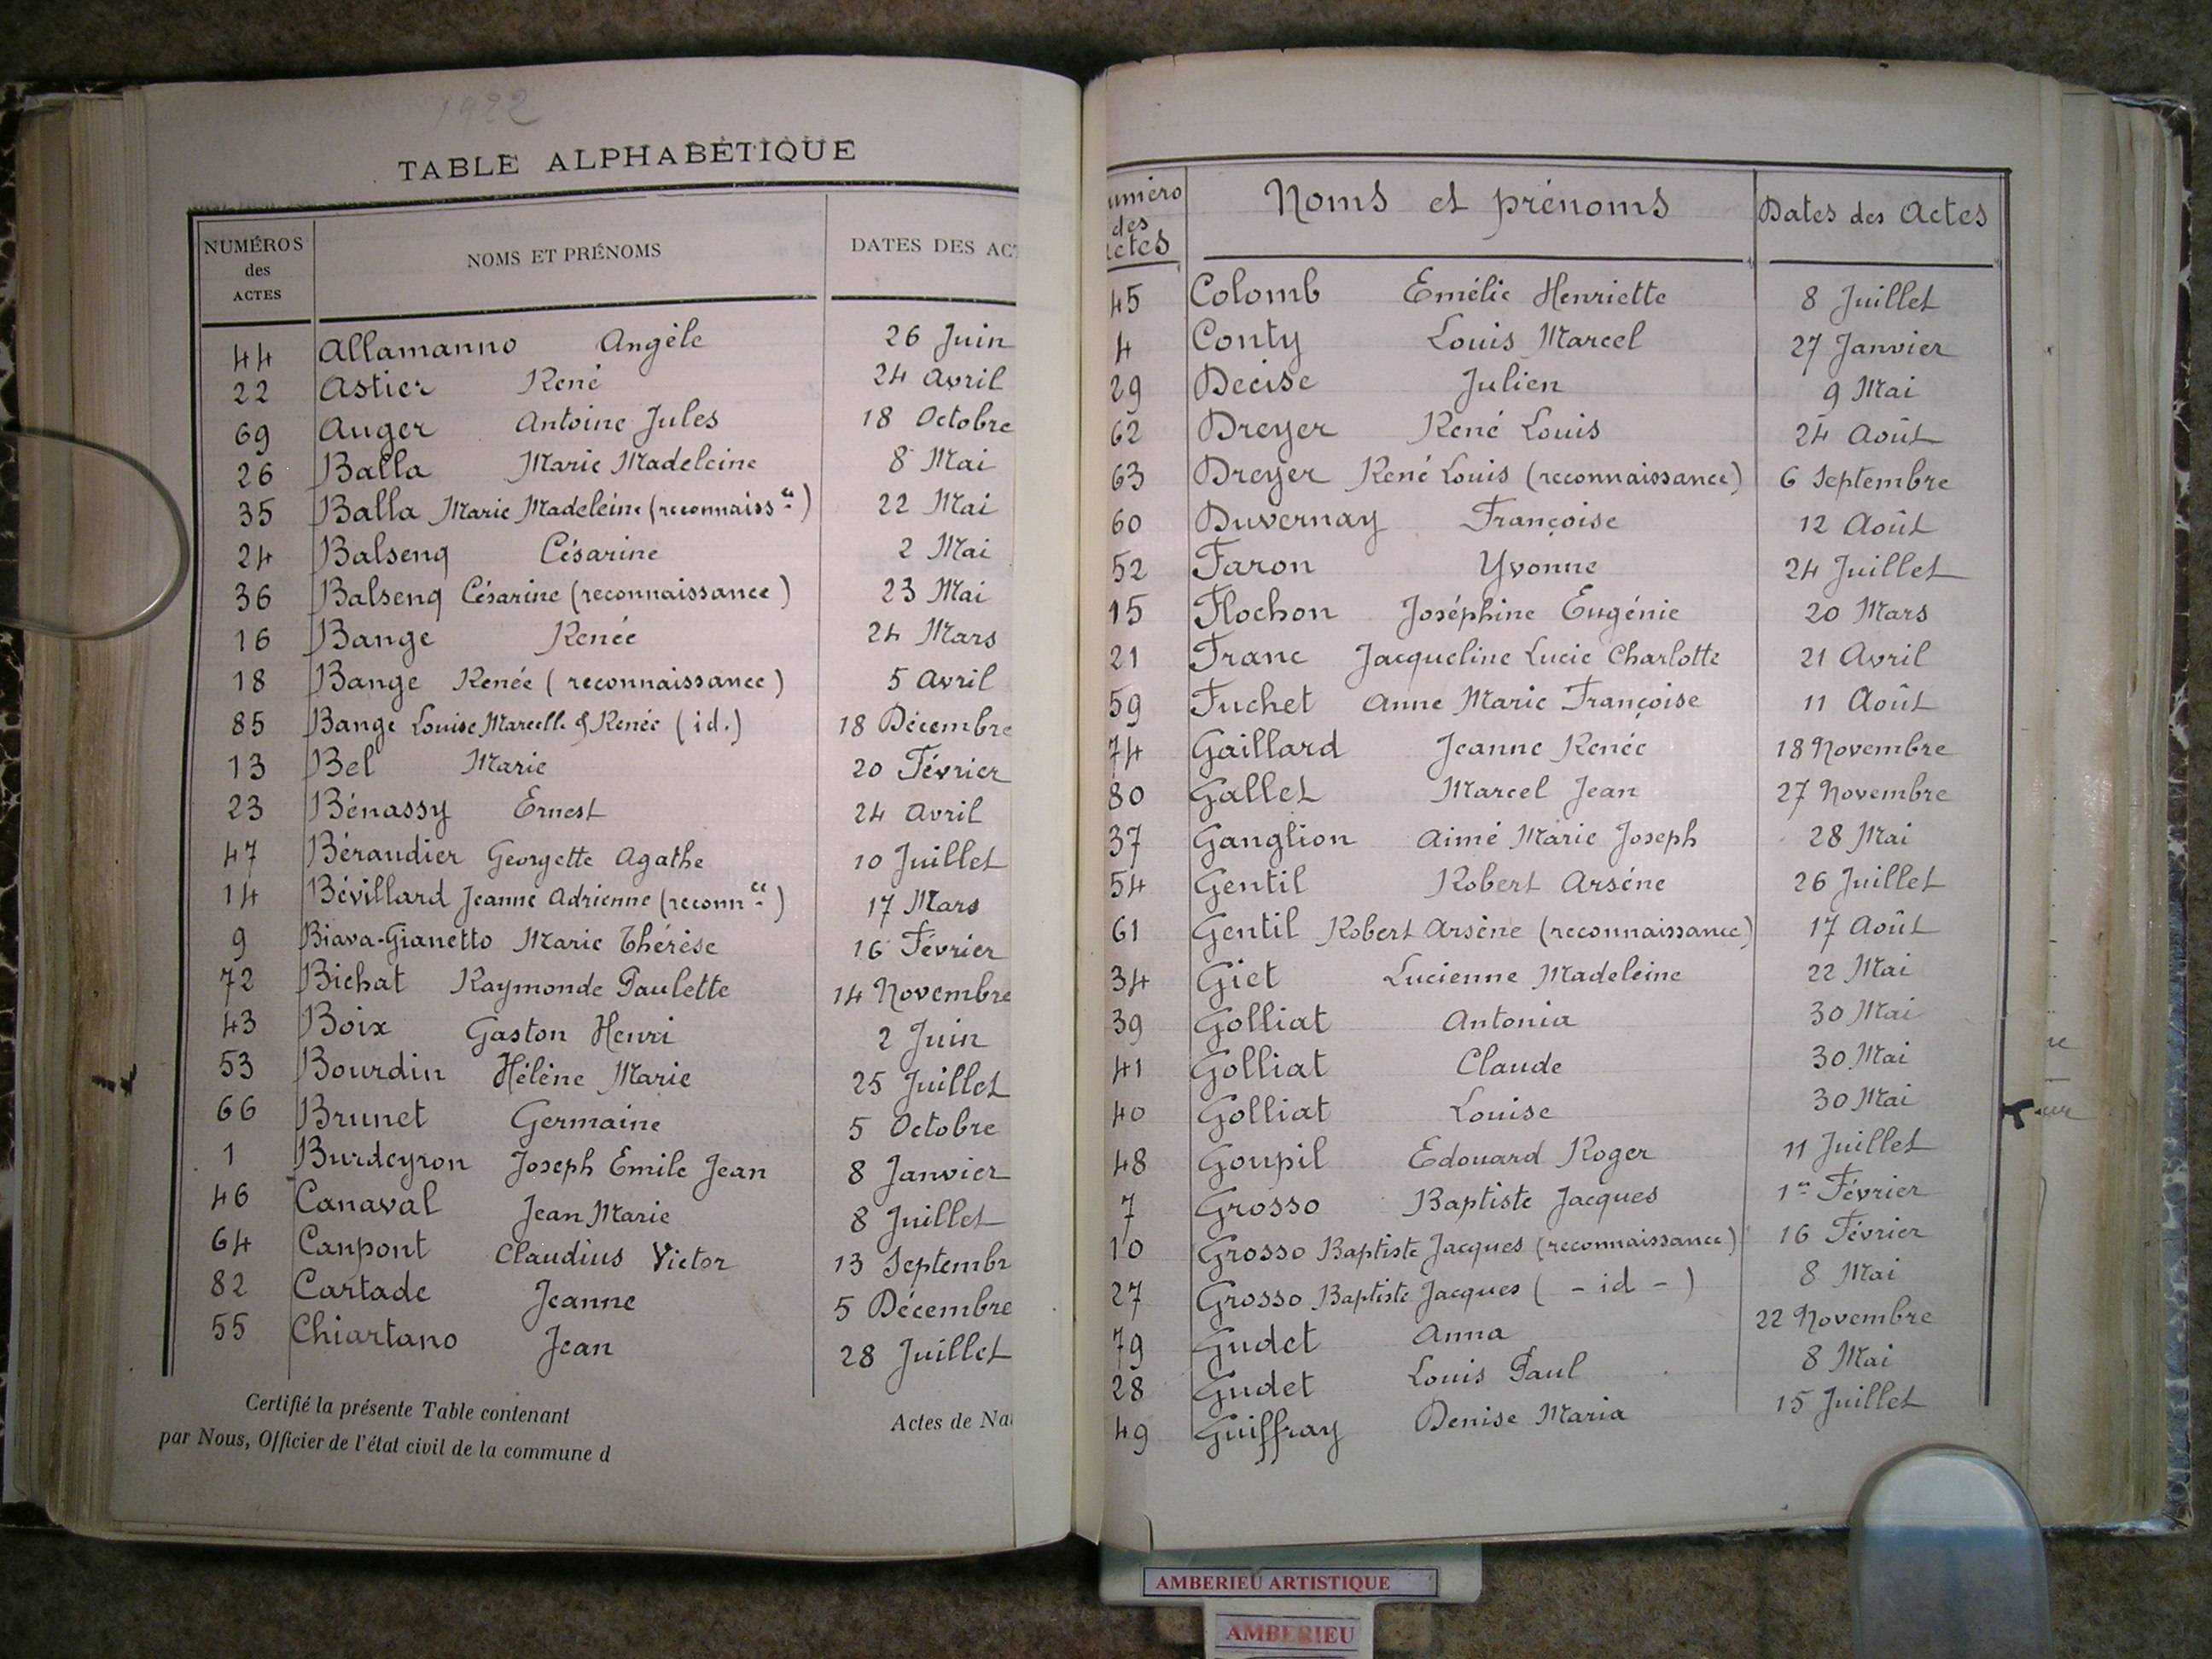 1922
TABLE ALPHABÉTIQUE
NUMÉROS des ACTES NOMS ET PRÉNOMS DATES DES AC
44 Allamanno Angèle 26 Juin
22 Astier René 24 Avril
69 Auger Antoine Jules 18 Octobre
26 Balla Marie Madeleine 8 Mai
35 Balla Marie Madeleine (reconnaiss ce) 22 Mai
24 Balsenq Césarine 2 Mai
36 Balsenq Césarine (reconnaissance) 23 Mai
16 Bange Renée 24 Mars
18 Bange Renée (reconnaissance) 5 Avril
85 Bange Louise Marcelle & Renée (id.) 18 Décembre
13 Bel Marie 20 Février
23 Bénassy Ernest 24 Avril
47 Béraudier Georgette Agathe 10 Juillet
14 Bévillard Jeanne Adrienne (reconn ce) 17 Mars
9 Biava-Gianetto Marie Thérèse 16 Février
72 Bichat Raymonde Paulette 14 Novembre
43 Boix Gaston Henri 2 Juin
53 Bourdin Hélène Marie 25 Juillet
66 Brunet Germaine 5 Octobre
1 Burdeyron Joseph Emile Jean 8 Janvier
46 Canaval Jean Marie 8 Juillet
64 Canpont Claudius Victor 13 Septembr
82 Cartade Jeanne 5 Décembre
55 Chiartano Jean 28 Juillet
Certifié la présente Table contenant Actes de Na
par Nous, Officier de l'état civil de la commune d
uméro des ctes Noms et prénoms Dates des Actes
45 Colomb Emélie Henriette 8 Juillet
4 Conty Louis Marcel 27 Janvier
29 Decise Julien 9 Mai
62 Dreyer René Louis 24 Août
63 Dreyer René Louis (reconnaissance) 6 Septembre
60 Duvernay Françoise 12 Août
52 Faron Yvonne 24 Juillet
15 Flochon Joséphine Eugénie 20 Mars
21 Franc Jacqueline Lucie Charlotte 21 Avril
59 Fuchet Anne Marie Françoise 11 Août
74 Gaillard Jeanne Renée 18 Novembre
80 Gallet Marcel Jean 27 Novembre
37 Ganglion Aimé Marie Joseph 28 Mai
54 Gentil Robert Arséne 26 Juillet
61 Gentil Robert Arsène (reconnaissance) 17 Août
34 Giet Lucienne Madeleine 22 Mai
39 Golliat Antonia 30 Mai
41 Golliat Claude 30 Mai
40 Golliat Louise 30 Mai
48 Goupil Edouard Roger 11 Juillet
7 Grosso Baptiste Jacques 1er Février
10 Grosso Baptiste Jacques (reconnaissance) 16 Février
27 Grosso Baptiste Jacques ( - id - ) 8 Mai
79 Gudet Anna 22 Novembre
28 Gudet Louis Paul 8 Mai
49 Guiffray Denise Maria 15 Juillet
AMBERIEU ARTISTIQUE
AMBERIEU